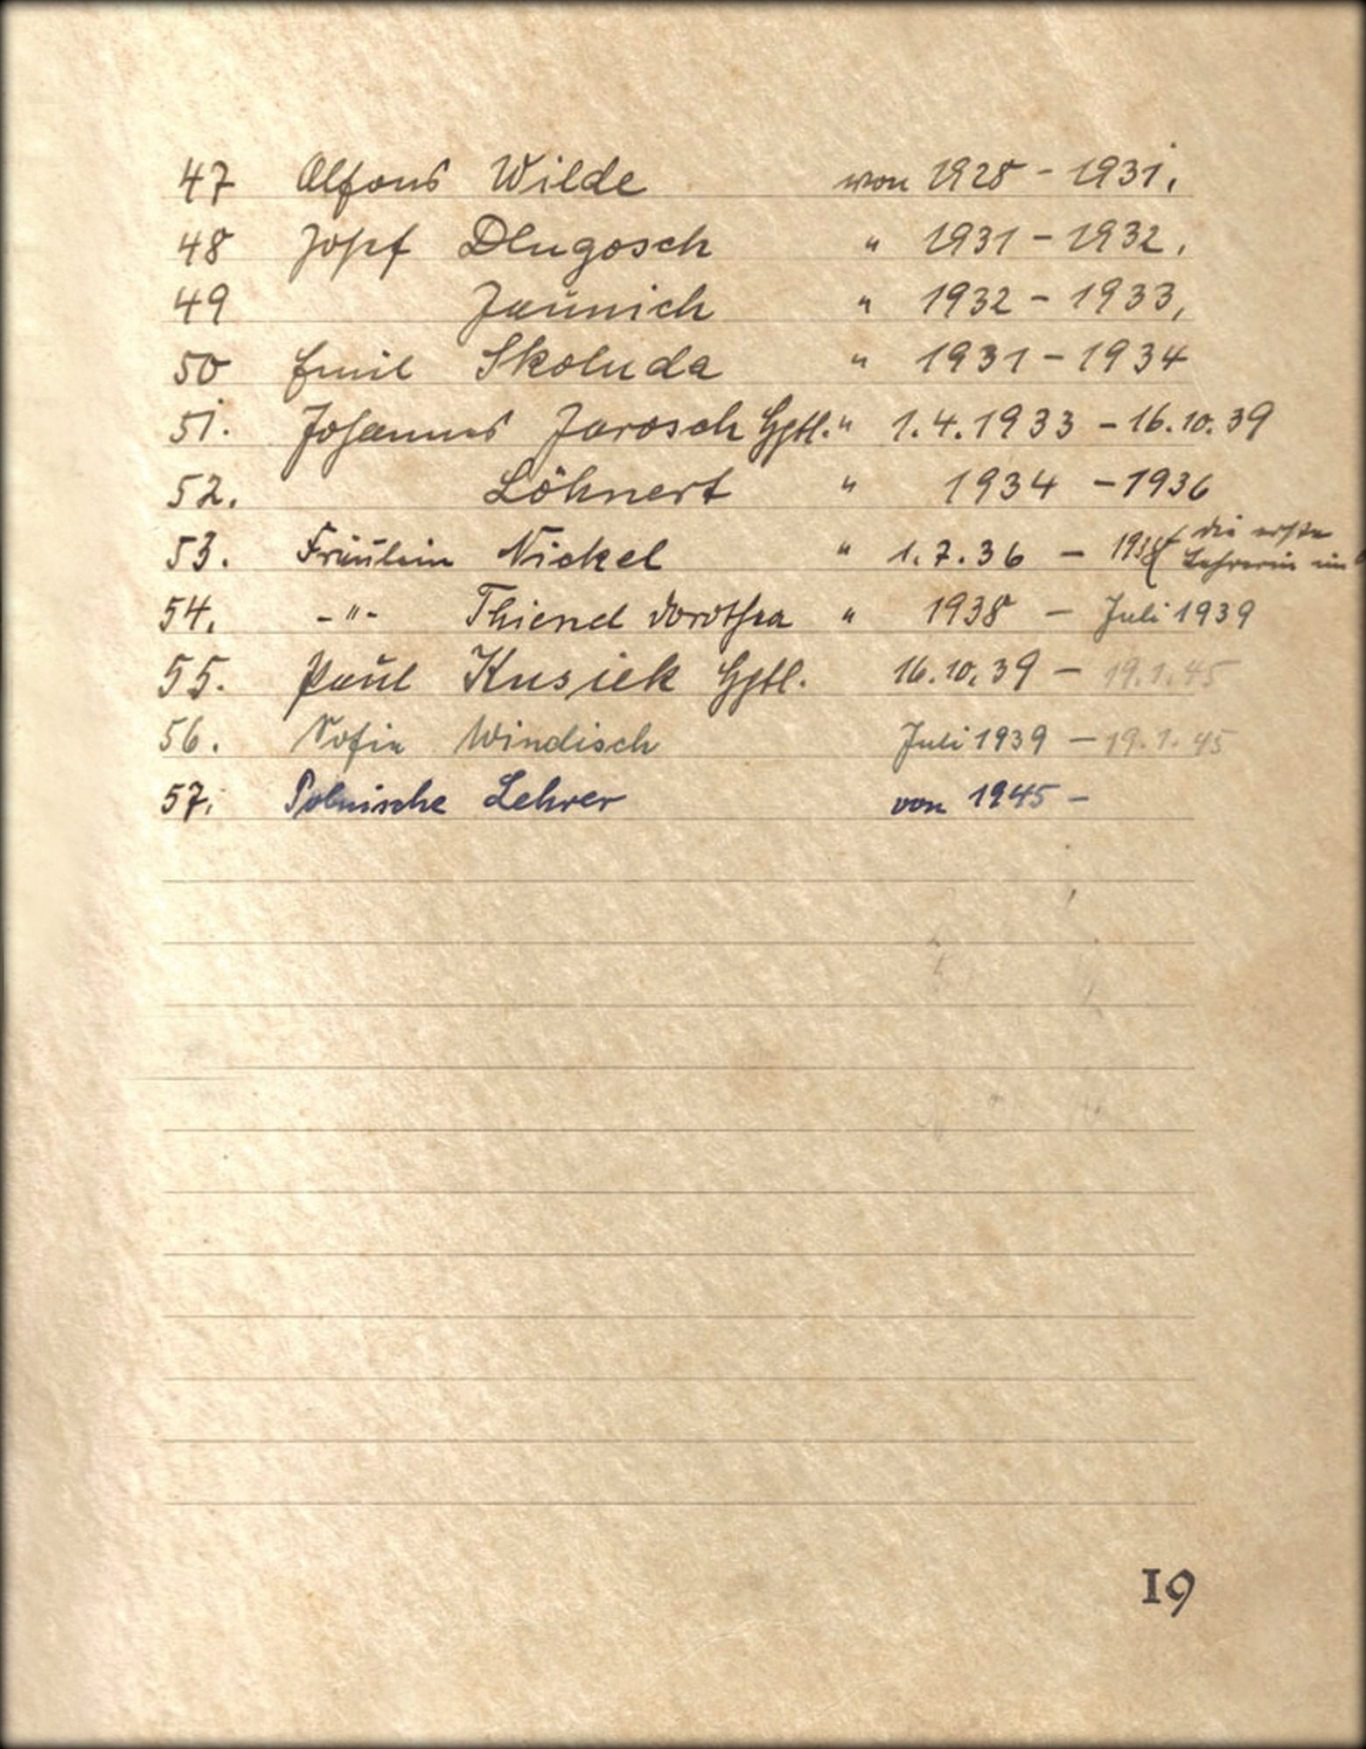 47 Alfons Wilde von 1928 - 1931.
48 Josef Dlugosch " 1931 - 1932.
49 Jaunich " 1932 - 1933,
50 Emil Skoluda " 1931 - 1934
51. Johannes Jarosch Hptl. " 1.4.1933 - 16.10.39
52. Löhnert " 1934 - 1936
53. Fräulein Nickel " 1.7.36 - 1938 ( die erste
Lehrerin im
54. - " - Thienel Dorothea " 1938 - Juli 1939
55. Paul Kusiek Hptl. 16.10.39 - 19.1.45
56. Sofie Windisch Juli 1939 - 19.1.45
57. Polnische Lehrer von 1945 -
19